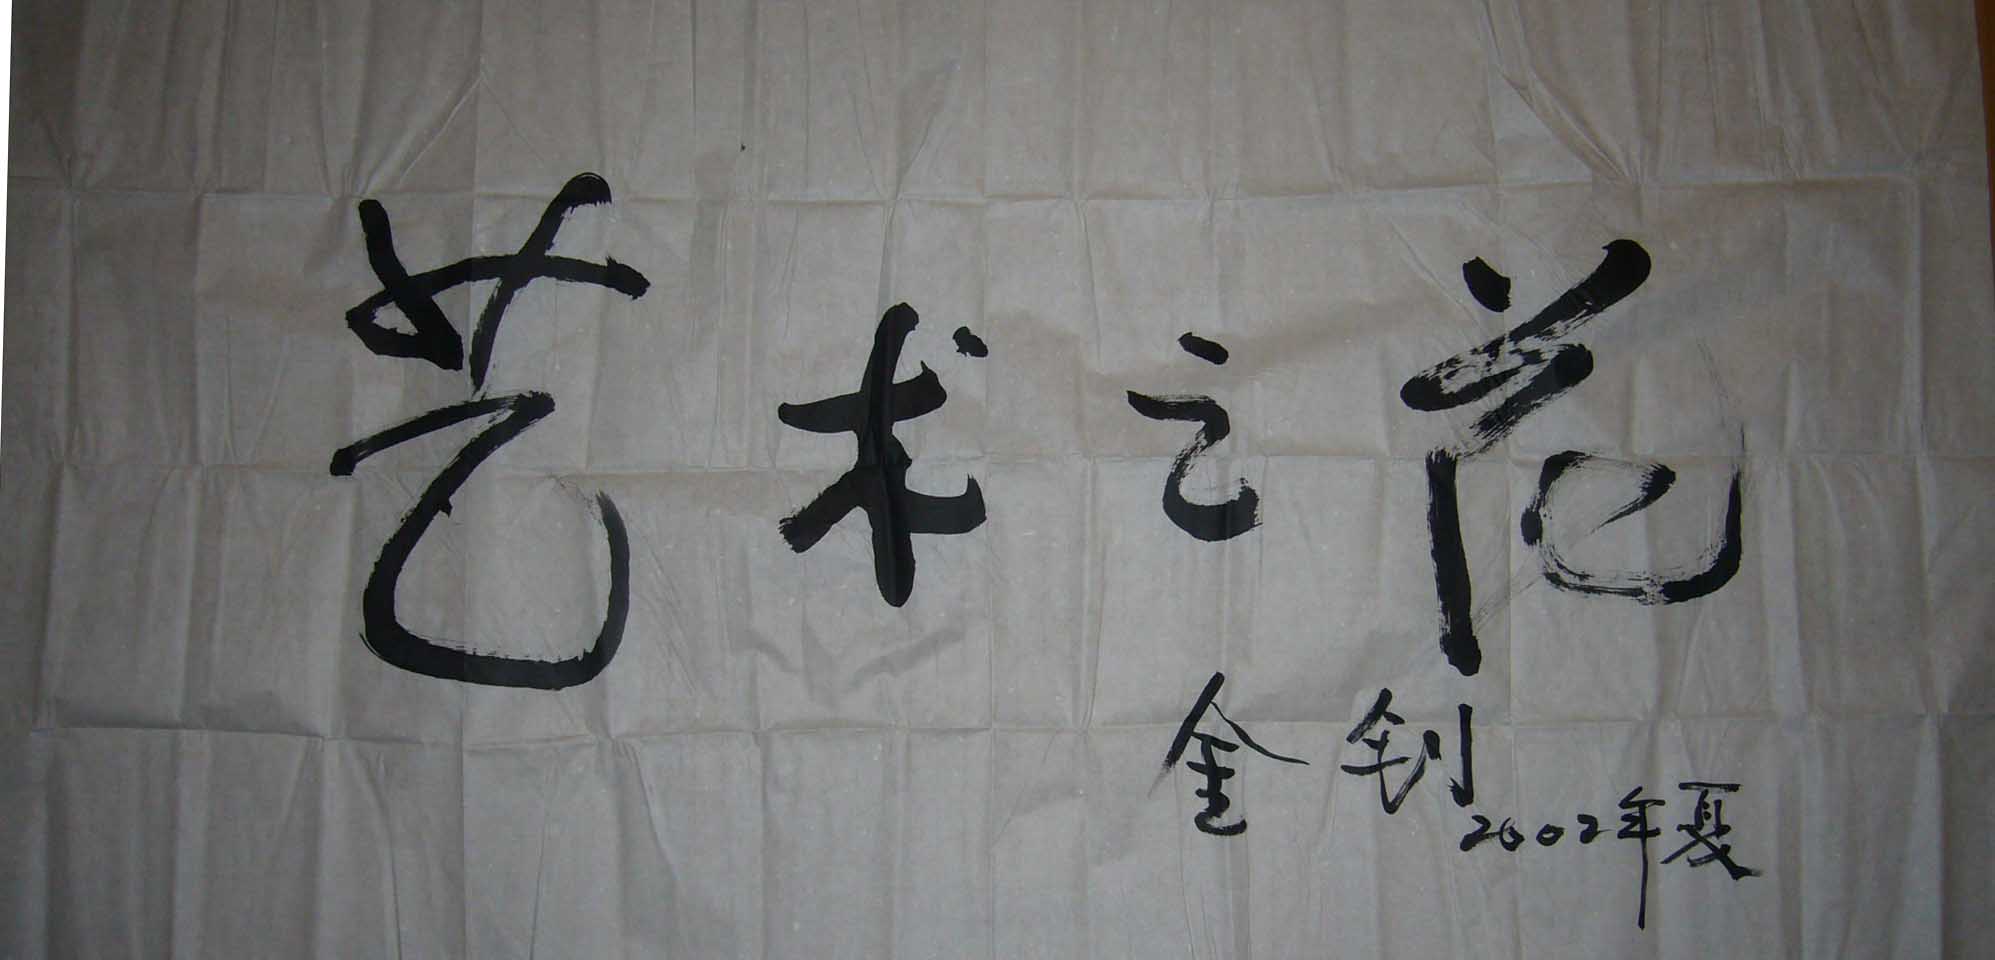 艺术之花
金钊
2002年夏